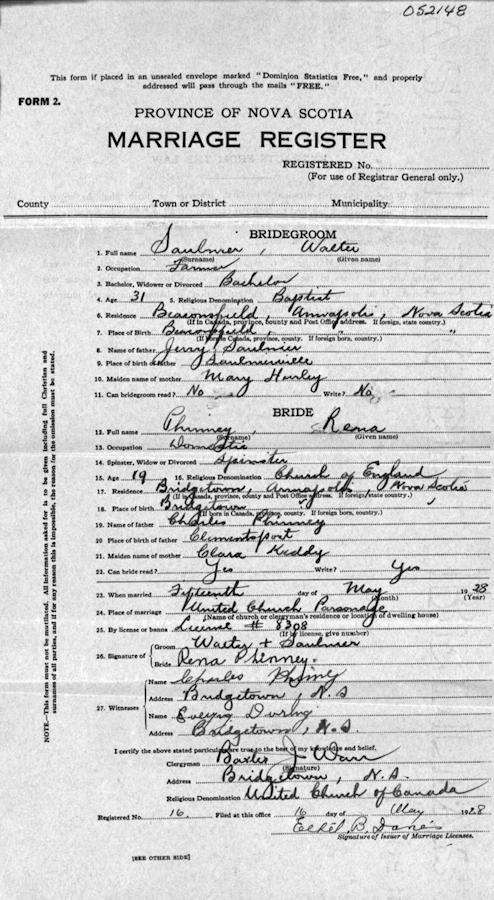 052148
This form if placed in an unsealed envelope marked "Dominion Statistics Free," and properly
addressed will pass through the mails "FREE."
FORM 2.
PROVINCE OF NOVA SCOTIA
MARRIAGE REGISTER
REGISTERED No.
(For use of Registrar General only.)
County Town or District Municipality
BRIDEGROOM
1. Full name Saulnier, Walter
(Surname) (Given name)
2. Occupation Farmer
3. Bachelor, Widower or Divorced Bachelor
4. Age 31 5. Religious Denomination Baptist
6. Residence Beaconsfield, Annapolis, Nova Scotia
(If in Canada, province, county and Post Office address. If foreign, state country.)
7. Place of Birth Beaconsfield, " "
(If born in Canada, province, county. If foreign born, country.)
8. Name of father Jerry Saulnier
9. Place of birth of father Saulnierville
10. Maiden name of mother Mary Hurley
11. Can bridegroom read? No Write? No
BRIDE
12. Full name Phinney, Rena
(Surname) (Given name)
13. Occupation Domestic
14. Spinster, Widow or Divorced Spinster
15. Age 19 16. Religious Denomination Church of England
17. Residence Bridgetown, Annapolis, Nova Scotia
(If in Canada, province, county and Post Office address. If foreign state country.)
18. Place of Birth Bridgetown " "
(If born in Canada, province, county. If foreign born, country.)
19. Name of father Charles Phinney
20. Place of birth of father Clementsport
21. Maiden name of mother Clara Kiddy
22. Can bride read? Yes Write? Yes
23. When married Fifteenth day of May 1928
(Month) (Year)
24. Place of marriage United Church Parsonage
(Name of church or clergyman's residence or location of dwelling house)
25. By license or banns License # 8308
(If by license, give number)
26. Signature of Groom Walter + Saulnier
Bride Rena Phinney.
27. Witnesses Name Charles
Address Bridgetown, N.S
Name Evelyn During
Address Bridgetown, N.S.
I certify the above stated particulars are true to the best of my knowledge and belief.
Clergyman Baxter J Warr
(Signature)
Address Bridgetown, N.S.
Religious Denomination United Church of Canada
Registered No. 16 Filed at this office 16 day of May 1928
Ethel B.
Signature of Issuer of Marriage Licenses.
[SEE OTHER SIDE]
NOTE.—This form must not be mutilated. All information asked for is to be given including full Christian and
surnames of all parties, and if for any reason this is impossible, the reason for the omission must be stated.